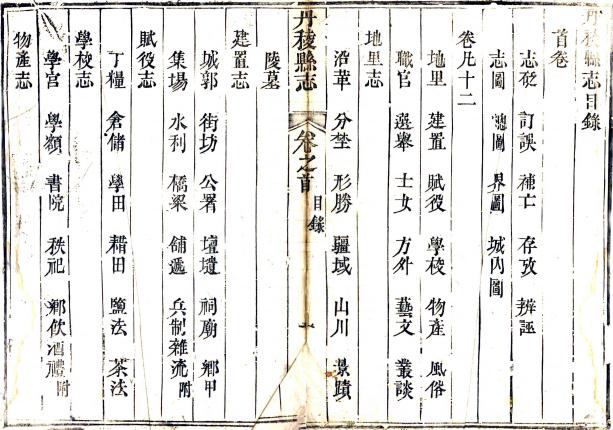 丹稜縣志目錄
首卷
志疑 訂誤 補亡 存攷 辨誣
志圖 總圖 界圖 城內圖
卷凡十二
地里 建置 賦役 學校 物產 風俗
職官 選舉 士女 方外 藝文 叢談
地里志
沿革 分埜 形勝 疆域 山川 景蹟
丹稜縣志 卷之首 目錄 一
陵墓
建置志
城郭 街坊 公署 壇壝 祠廟 鄉甲
集場 水利 橋梁 舖遞 兵制雜流附
賦役志
丁糧 倉儲 學田 耤田 鹽法 茶法
學校志
學宮 學額 書院 秩祀 鄉飲酒禮附
物產志